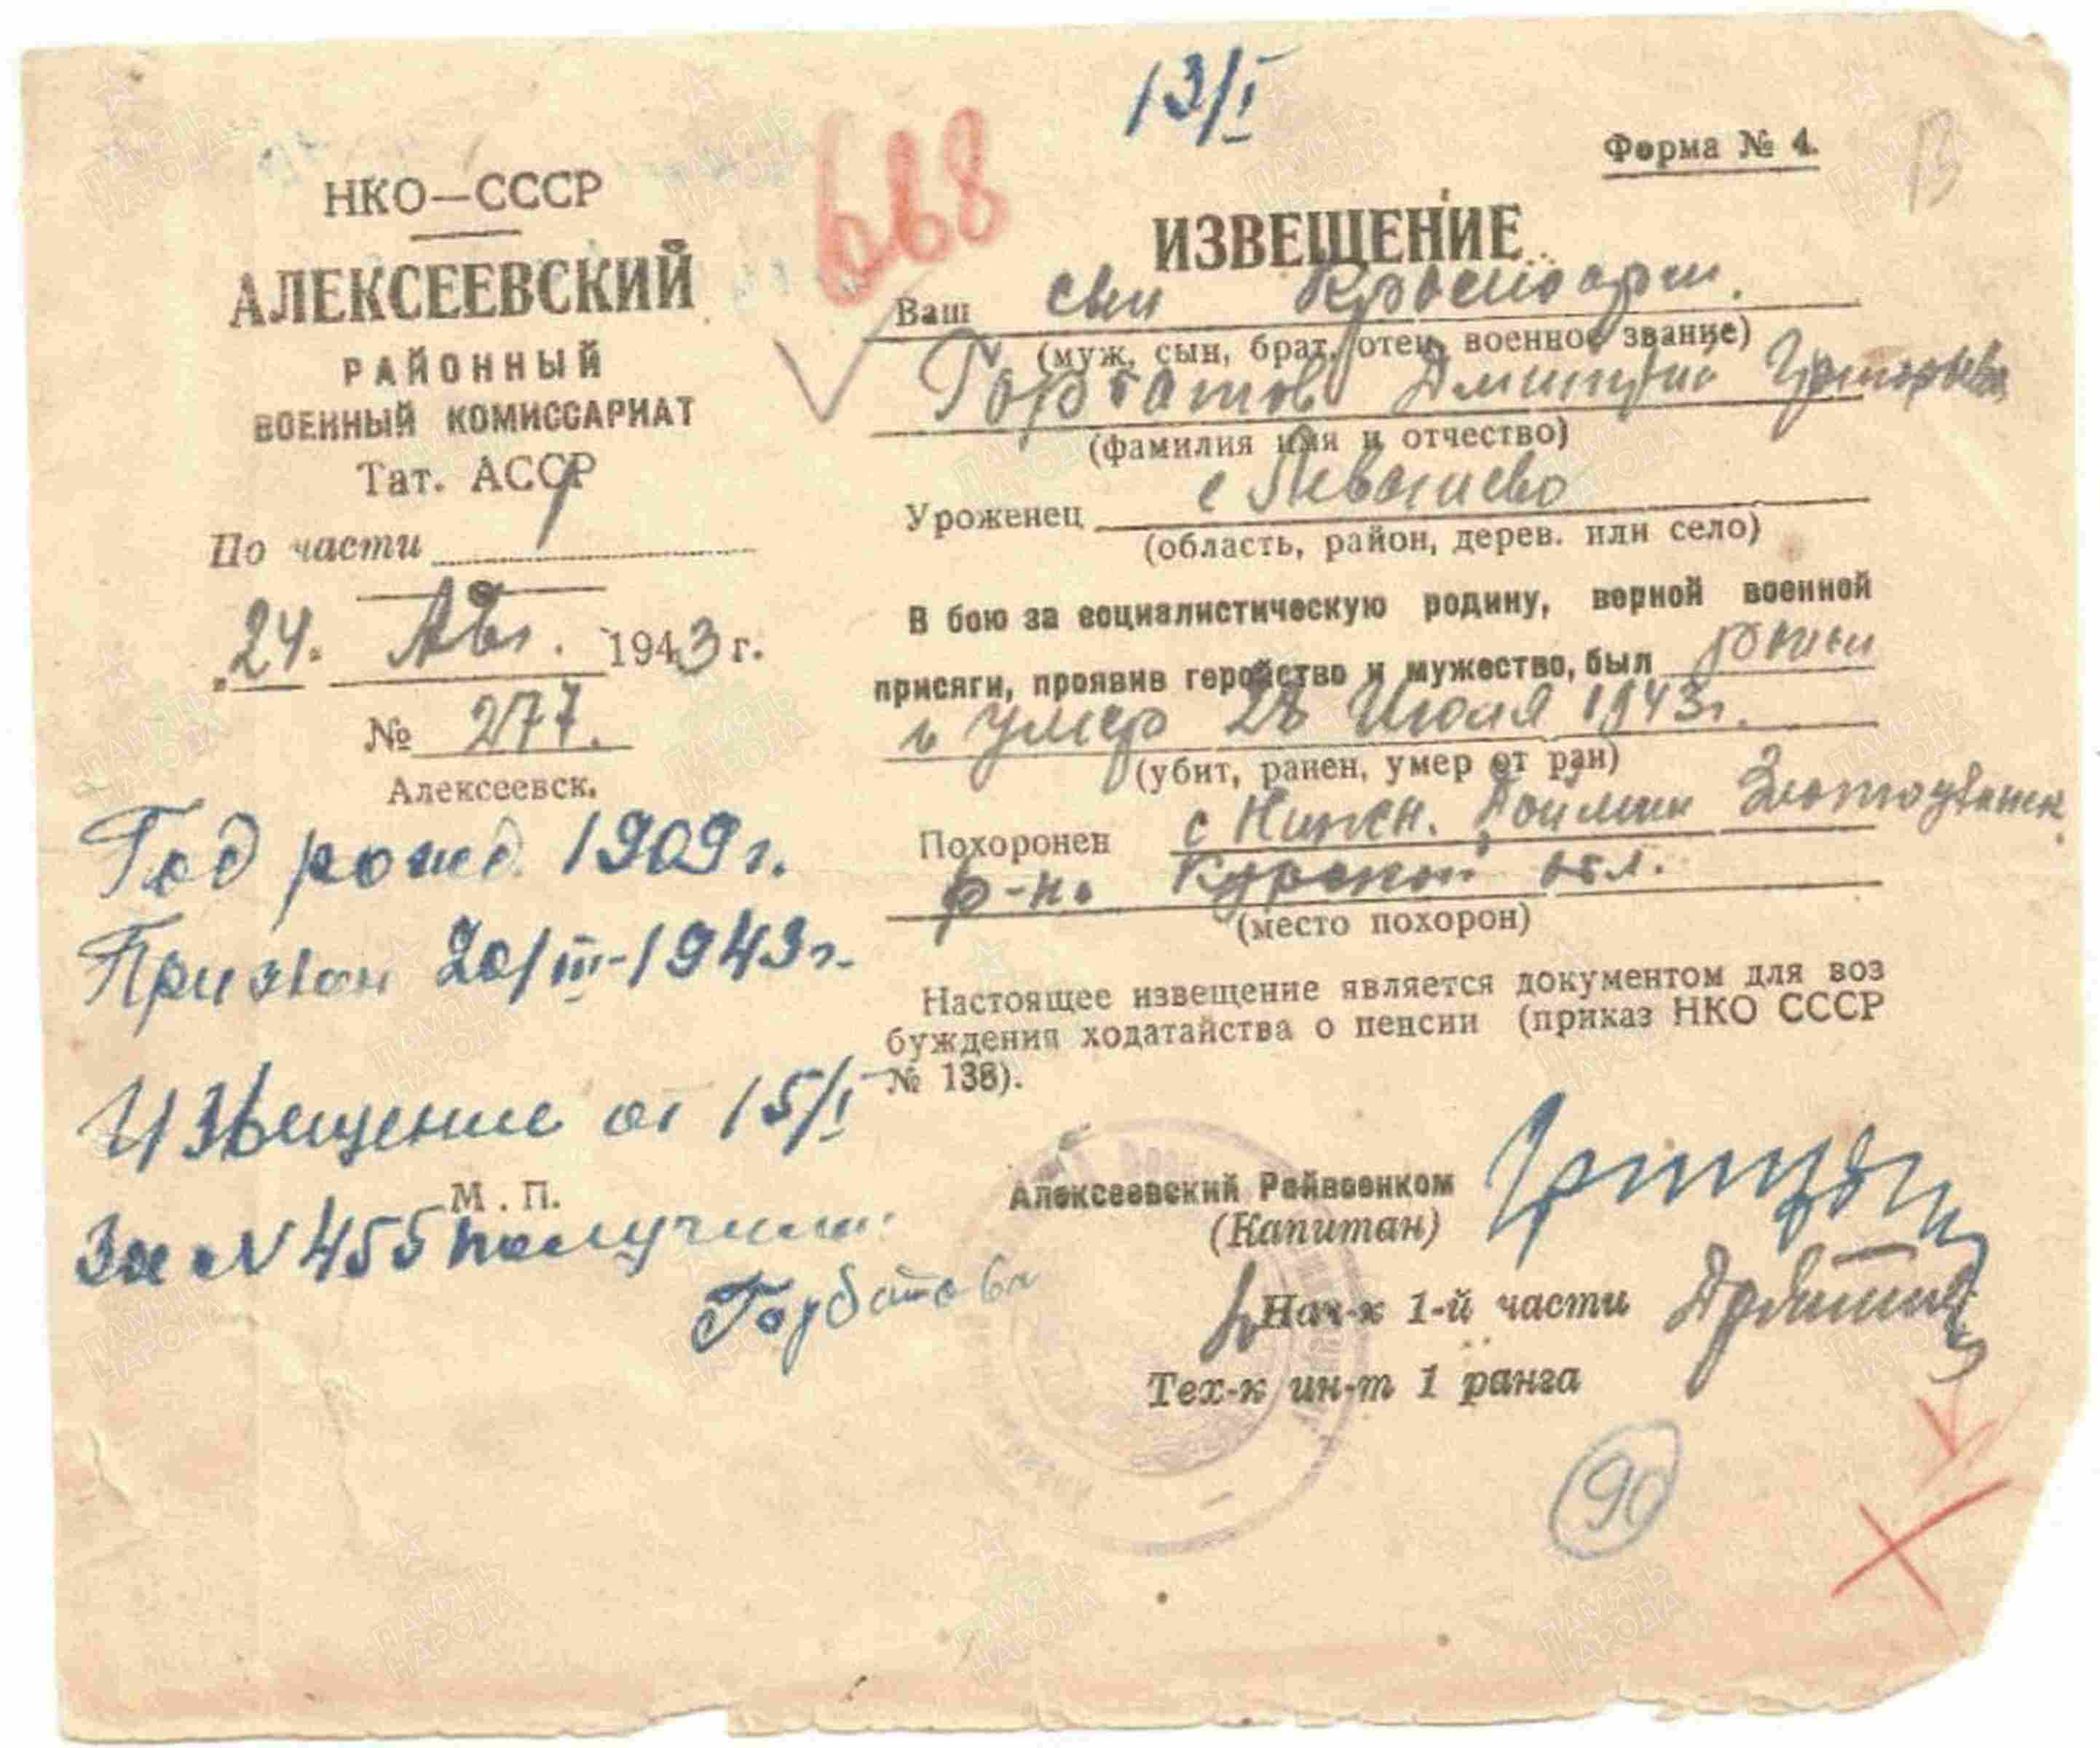 13/I
668
Форма № 4.
13
НКО—СССР
АЛЕКСЕЕВСКИЙ
РАЙОННЫЙ
ВОЕННЫЙ КОМИССАРИАТ
Тат. АССР
По части 1
24. Авг. 1943 г.
№ 277.
Алексеевск.
Год рожд. 1909 г.
Призван 20/III-1943 г.
Извещение от 15/I
М. П.
За N 455 получила
Горбатова
ИЗВЕЩЕНИЕ
Ваш сын Красноарм.
(муж, сын, брат, отец, военное звание)
Горбатов Дмитрий Григорьев
(фамилия имя и отчество)
Уроженец с Левашево
(область, район, дерев. или село)
В бою за социалистическую родину, верной военной
присяги, проявив геройство и мужество, был ранен
и умер 28 Июля 1943 г.
(убит, ранен, умер от ран)
Похоронен с Нижн.
р-на Курской обл.
(место похорон)
Настоящее извещение является документом для воз
буждения ходатайства о пенсии (приказ НКО СССР
№ 138).
Алексеевский Райвоенком
(Капитан)
Нач-к 1-й части
Тех-к ин-т 1 ранга
90
ПАМЯТЬ НАРОДА